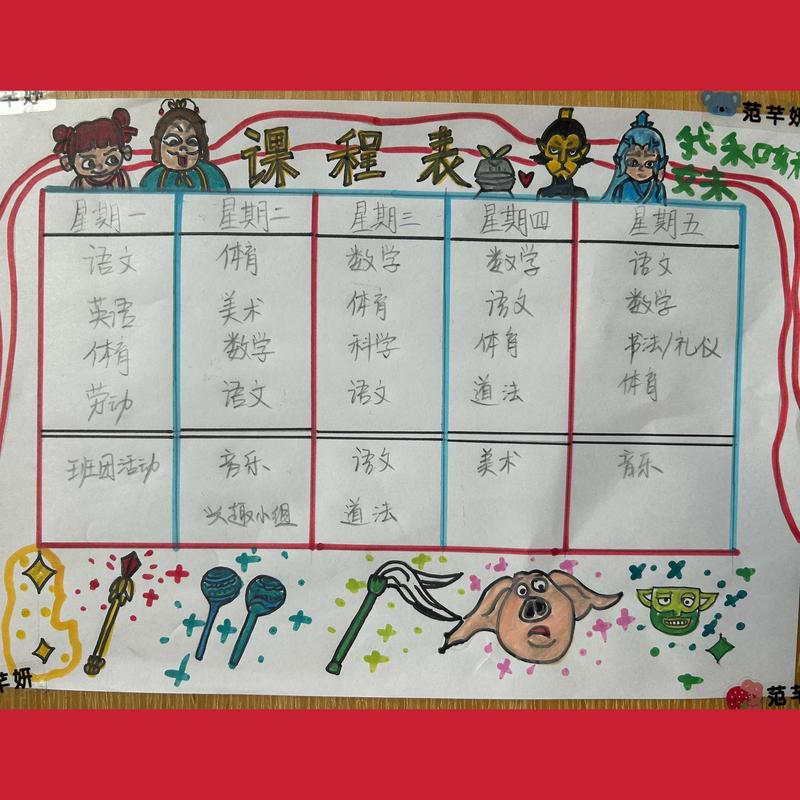 范芊妍
课程表
星期一 星期二 星期三 星期四 星期五
语文 体育 数学 数学 语文
英语 美术 体育 语文 数学
体育 数学 科学 体育 书法/礼仪
劳动 语文 语文 道法 体育
班团活动 音乐 语文 美术 音乐
兴趣小组 道法
芊妍
范芊